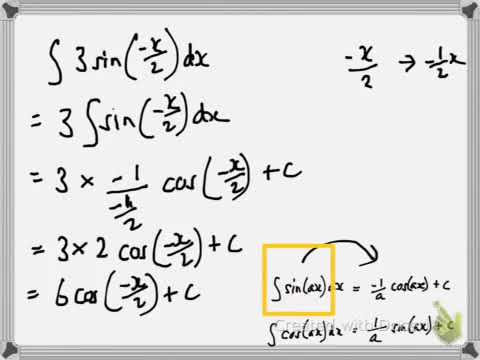 ∫ 3 sin(-x/2) dx
-x/2 → -1/2 x
= 3 ∫ sin(-x/2) dx
= 3 × -1/(-1/2) cos(-x/2) + c
= 3 × 2 cos(-x/2) + c
= 6 cos(-x/2) + c
∫ sin(ax) dx = -1/a cos(ax) + c
∫ cos(ax) dx = 1/a sin(ax) + c
Created with